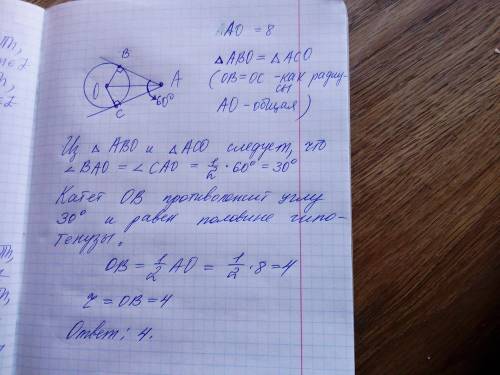 AO = 8
B
O
A
60°
C
△ABO = △ACO
(OB=OC - как радиу-
сы
AO - общая)
Из △ABO и △ACO следует, что
∠BAO = ∠CAO = 1/2 · 60° = 30°
Катет OB противолежит углу
30° и равен половине гипо-
тенузы.
OB = 1/2 AO = 1/2 · 8 = 4
r = OB = 4
Ответ: 4.